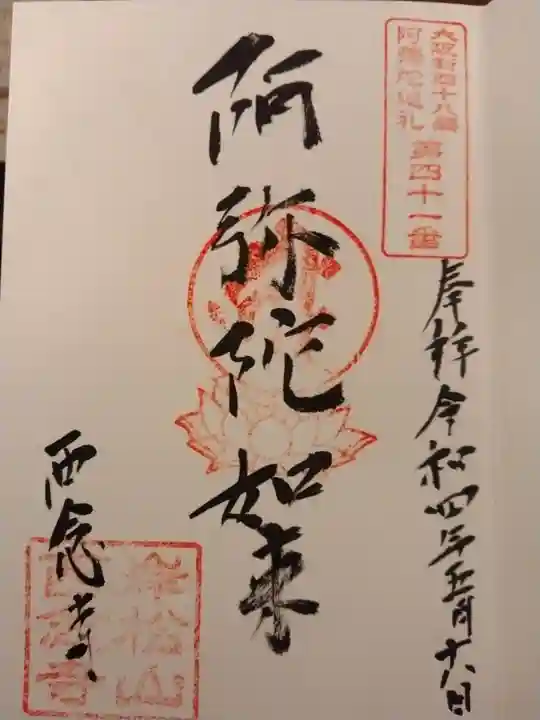 大阪新四十八願
阿彌陀巡礼
第四十一番
奉拝 令和四年五月十八日
阿弥陀如来
西念寺
松山
西念寺